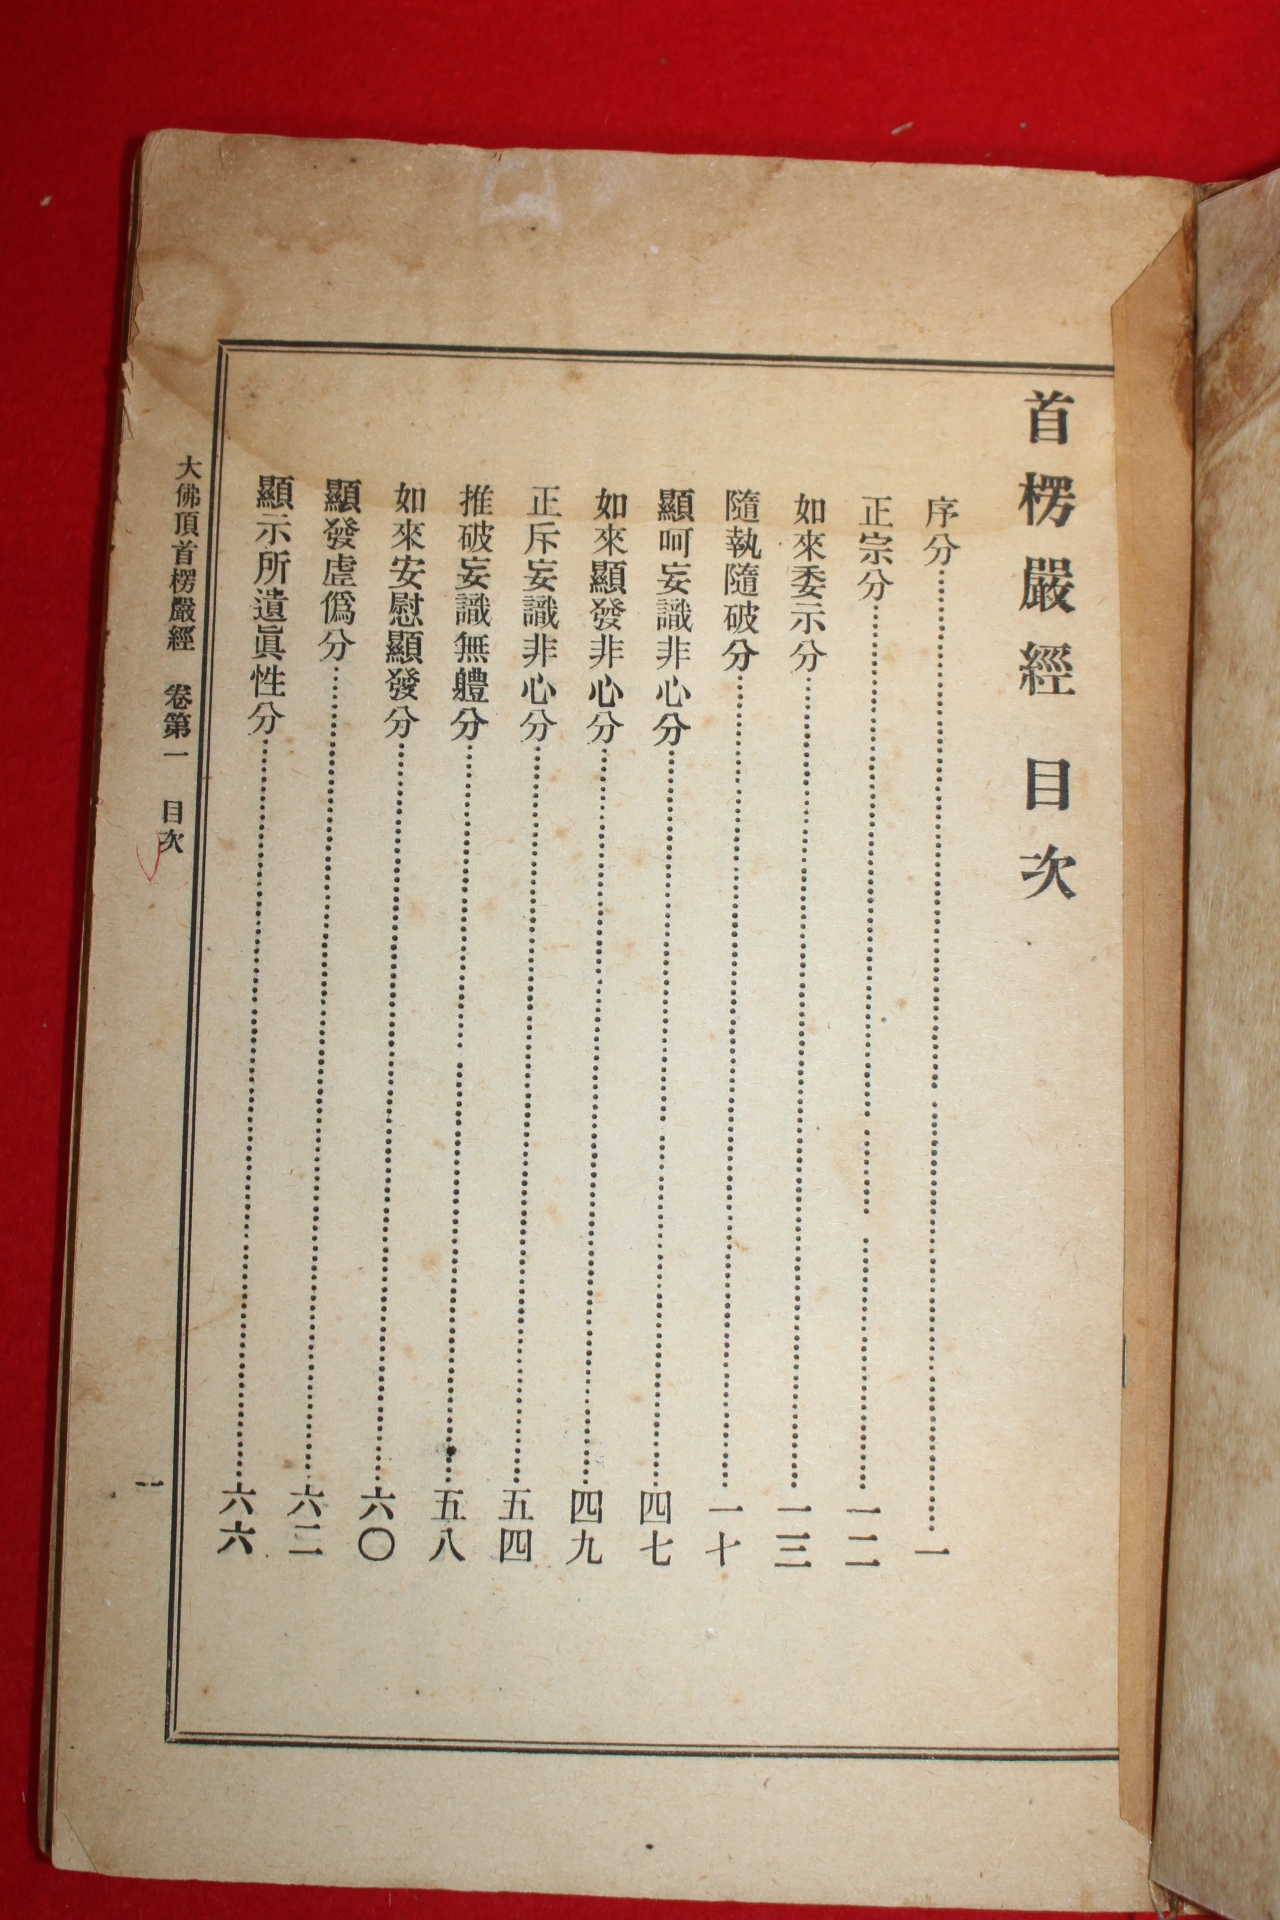 首楞嚴經 目次
序分……一
正宗分……一二
如來委示分……一三
隨執隨破分……一十
顯呵妄識非心分……四七
如來顯發非心分……四九
正斥妄識非心分……五四
推破妄識無軆分……五八
如來安慰顯發分……六〇
顯發虛僞分……六二
顯示所遺眞性分……六六
大佛頂首楞嚴經 卷第一 目次
一